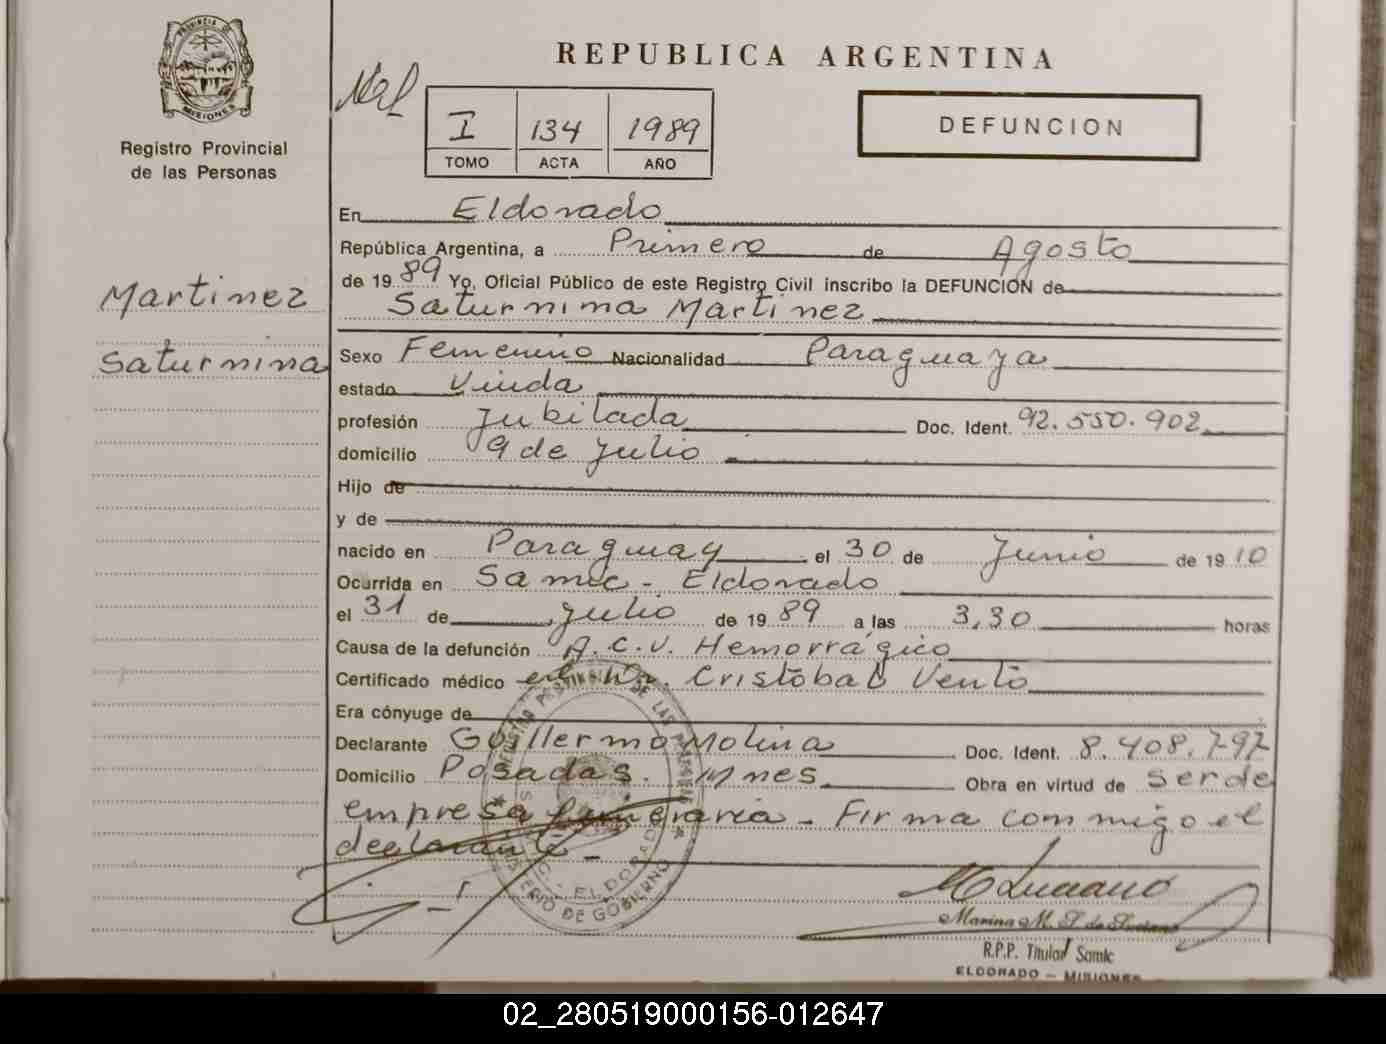 PROVINCIA DE
MISIONES
Registro Provincial
de las Personas
Martinez
Saturnina
REPUBLICA ARGENTINA
DEFUNCION
I 134 1989
TOMO ACTA AÑO
En Eldorado
República Argentina, a Primero de Agosto
de 1989 Yo, Oficial Público de este Registro Civil inscribo la DEFUNCION de
Saturnina Martinez
Sexo Femenino Nacionalidad Paraguaya
estado Viuda
profesión Jubilada Doc. Ident. 92.550.902
domicilio 9 de Julio
Hijo de
y de
nacido en Paraguay el 30 de Junio de 1910
Ocurrida en Samic - Eldorado
el 31 de Julio de 1989 a las 3,30 horas
Causa de la defunción A.C.V. Hemorrágico
Certificado médico del Dr. Cristóbal Vento
Era cónyuge de
Declarante Guillermo Molina Doc. Ident. 8.408.797
Domicilio Posadas. Mnes Obra en virtud de ser de
empresa funeraria - Firma conmigo el
declarante -
REGISTRO PROVINCIAL DE LAS PERSONAS
ELDORADO
MINISTERIO DE GOBIERNO
M Luciano
Marina M. de Luciano
R.P.P. Titular Samic
ELDORADO - MISIONES
02_280519000156-012647